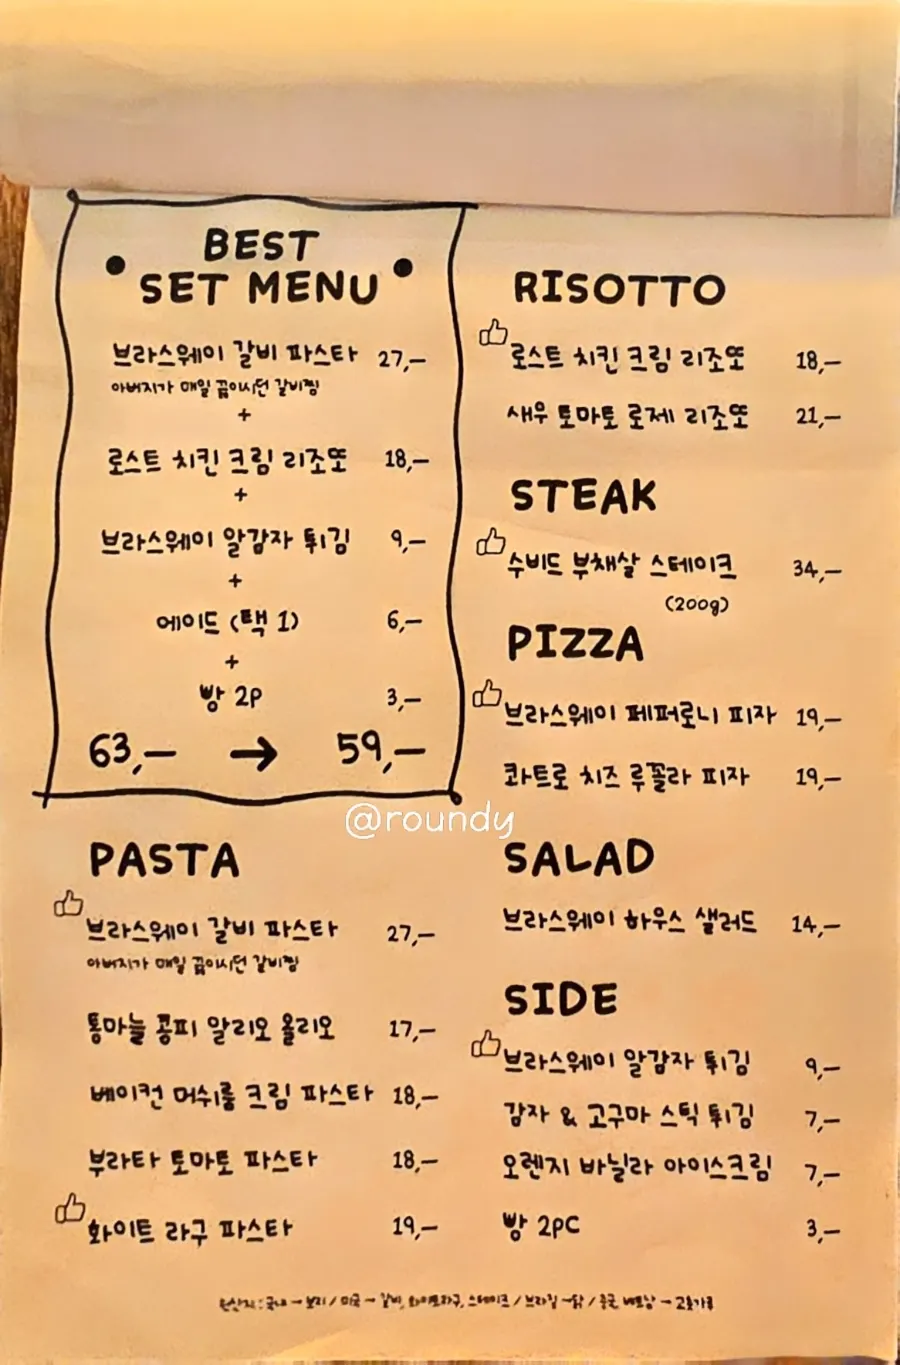 BEST
SET MENU
브라스웨이 갈비 파스타 27,-
아버지가 매일 끓이시던 갈비찜
+
로스트 치킨 크림 리조또 18,-
+
브라스웨이 알감자 튀김 9,-
+
에이드 (택 1) 6,-
+
빵 2P 3,-
63,- → 59,-
PASTA
브라스웨이 갈비 파스타 27,-
아버지가 매일 끓이시던 갈비찜
통마늘 콩피 알리오 올리오 17,-
베이컨 머쉬룸 크림 파스타 18,-
부라타 토마토 파스타 18,-
화이트 라구 파스타 19,-
RISOTTO
로스트 치킨 크림 리조또 18,-
새우 토마토 로제 리조또 21,-
STEAK
수비드 부채살 스테이크 34,-
(200g)
PIZZA
브라스웨이 페퍼로니 피자 19,-
콰트로 치즈 루꼴라 피자 19,-
SALAD
브라스웨이 하우스 샐러드 14,-
SIDE
브라스웨이 알감자 튀김 9,-
감자 & 고구마 스틱 튀김 7,-
오렌지 바닐라 아이스크림 7,-
빵 2PC 3,-
원산지 : 국내 - / 미국 - 갈비, 화이트라구, 스테이크 / 브라질 - 닭 / 중국, 베트남 - 고춧가루
@roundy